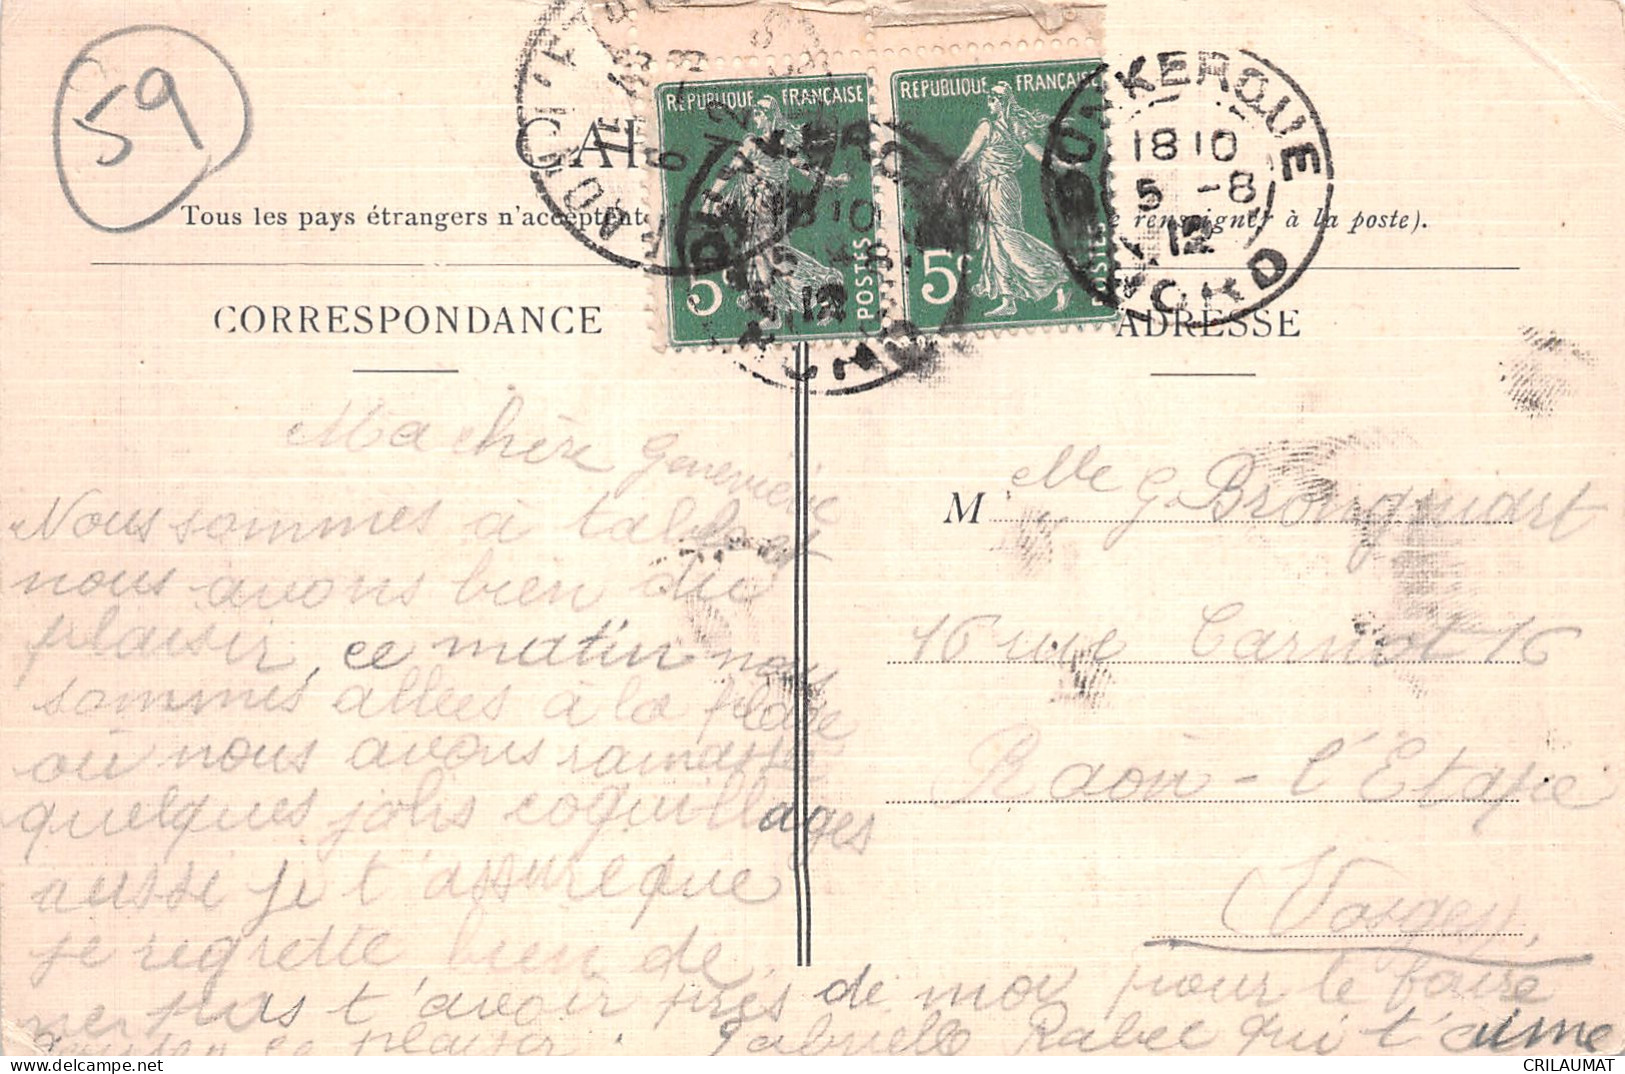 59
RAON L'ETAPE
6 -8 12
REPUBLIQUE FRANÇAISE
5c POSTES
REPUBLIQUE FRANÇAISE
5c POSTES
DUNKERQUE
18 10
5 -8
12
NORD
Tous les pays étrangers n'acceptent renseigner à la poste).
CORRESPONDANCE
ADRESSE
Ma chère Geneviève
Nous sommes à table et
nous avons bien du
plaisir, ce matin nous
sommes allées à la plage
où nous avons ramassé
quelques jolis coquillages
aussi je t'assure que
je regrette bien de
ne pas t'avoir près de moi pour te faire
ce plaisir. Gabrielle Rabel qui t'aime
M elle G. Brongniart
16 rue Carnot 16
Raon-l'Etape
(Vosges)
CRILAUMAT